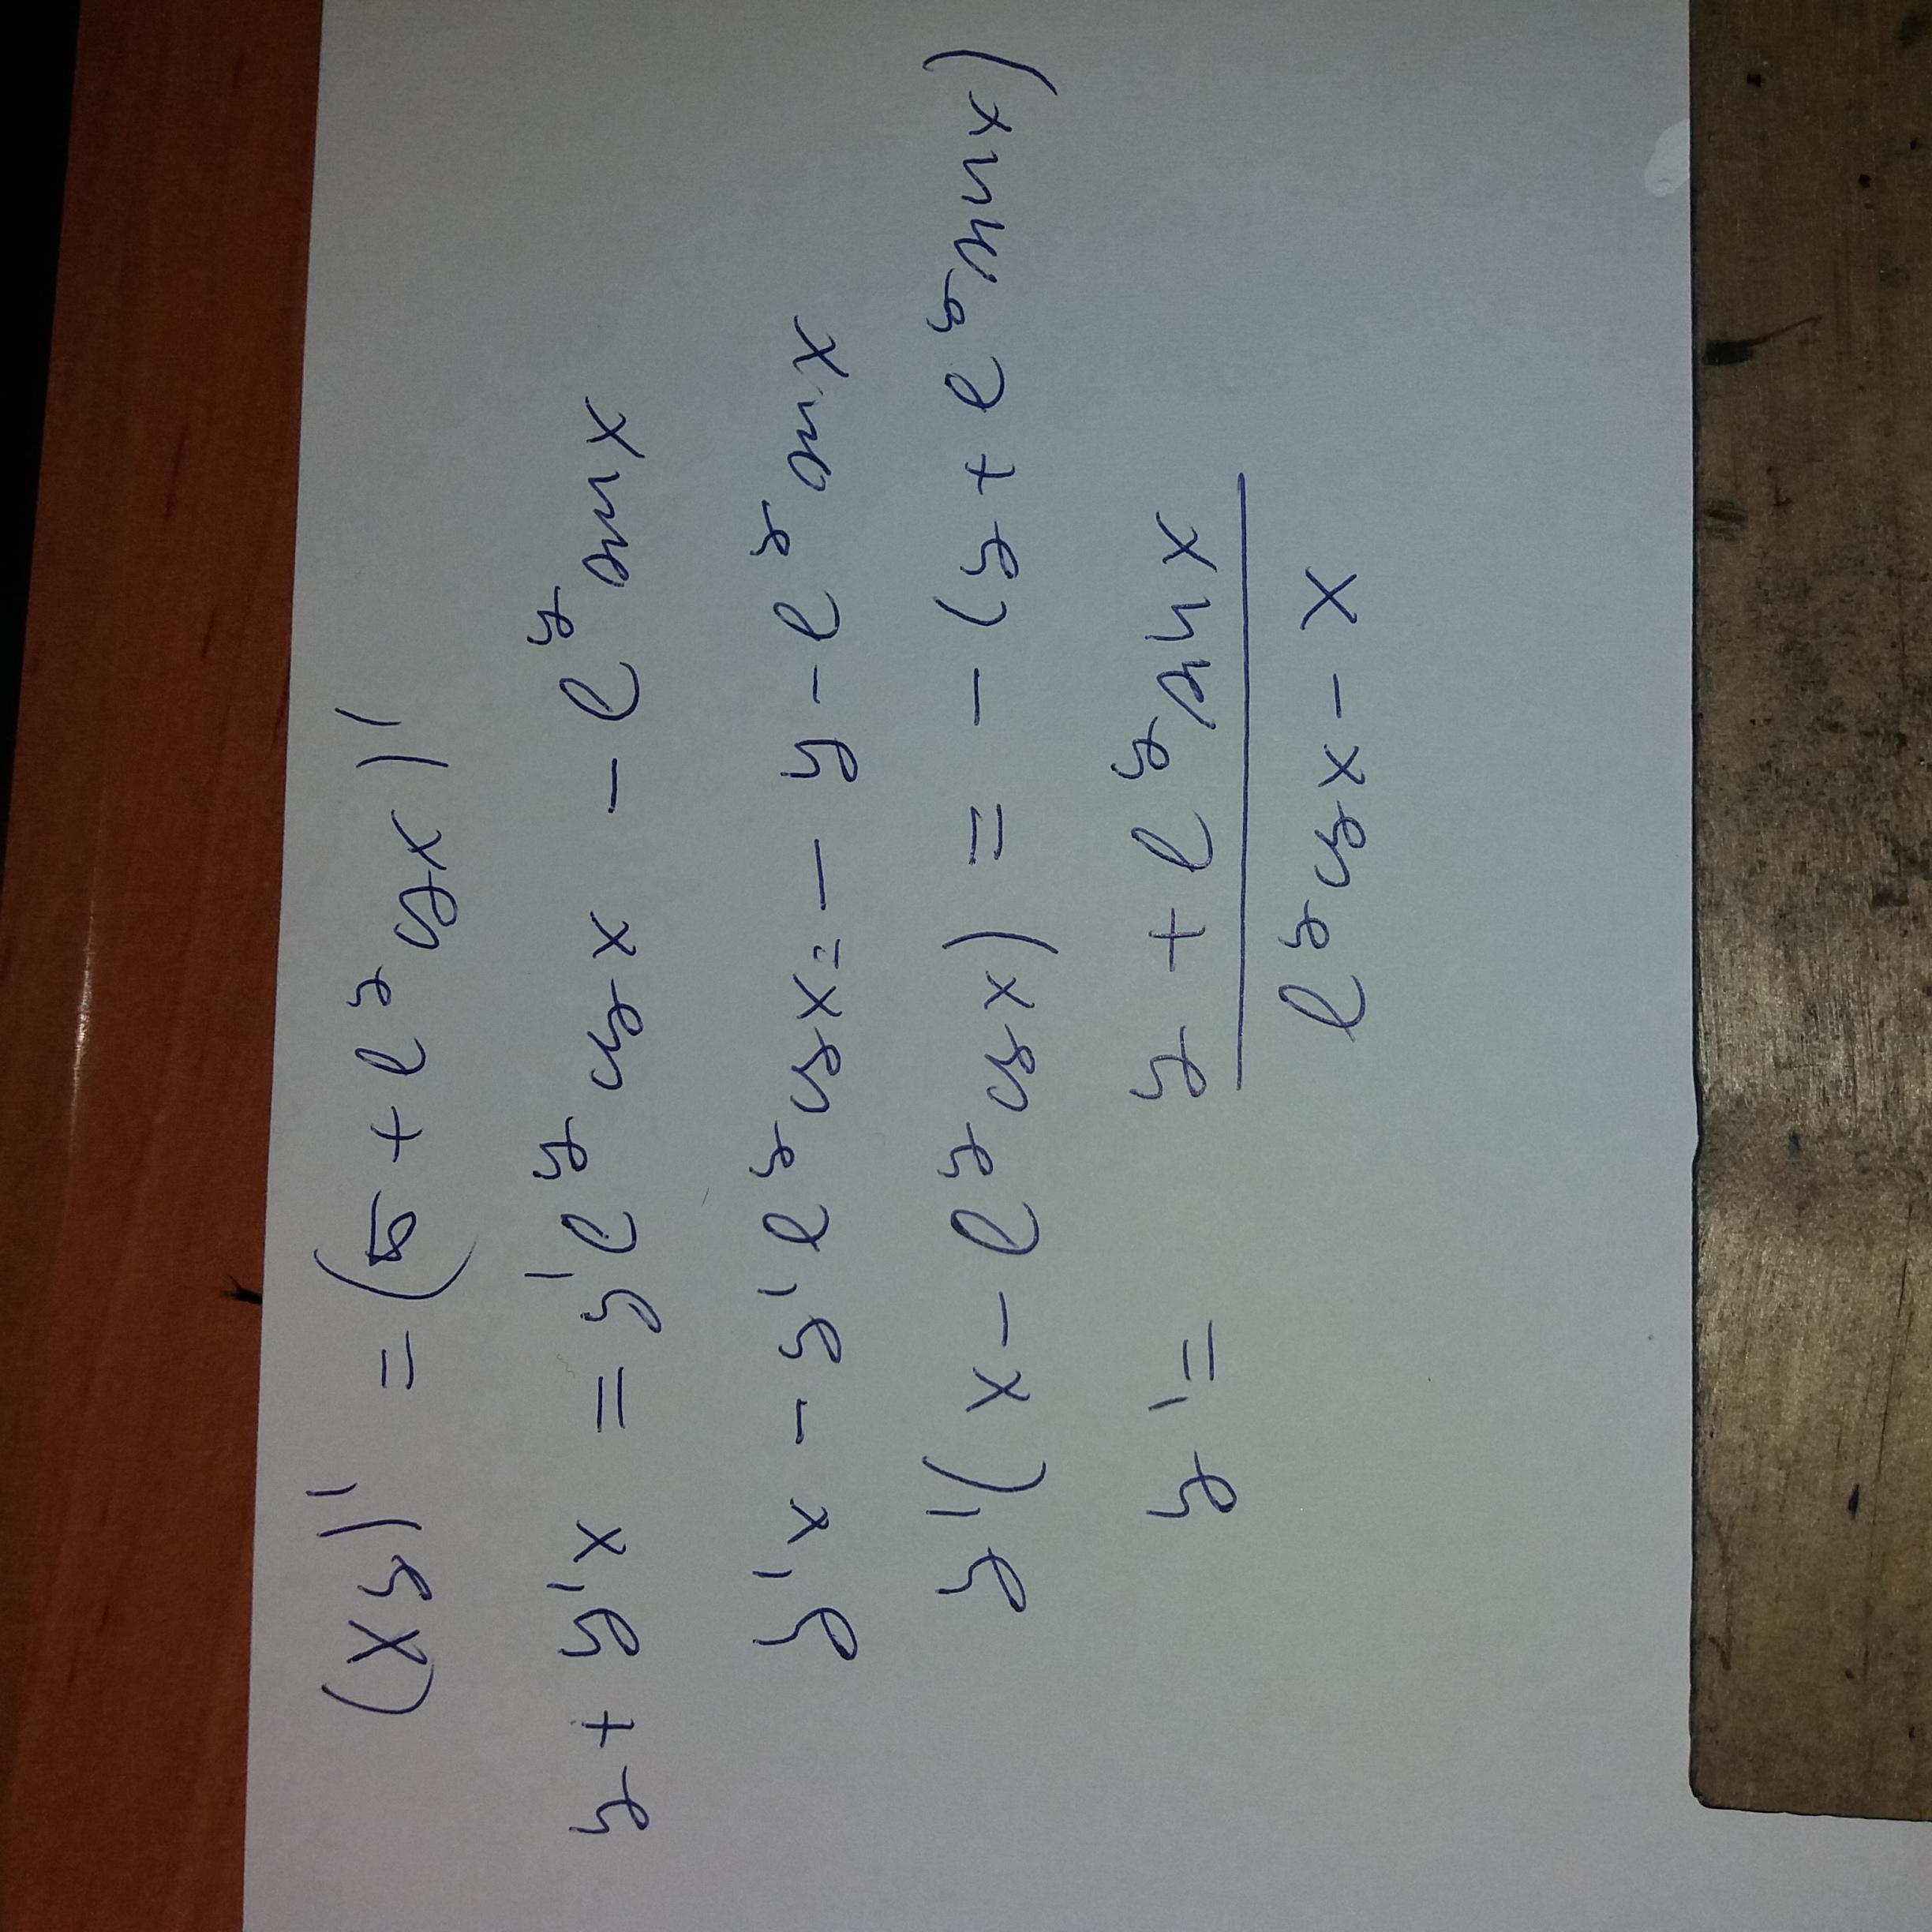 (xy)' = (5 + e^y cosx)'
y + y'x = y'e^y cosx - e^y sinx
y'x - y'e^y cosx = -y - e^y sinx
y'(x - e^y cosx) = -(y + e^y sinx)
y' = y + e^y sinx
e^y cosx - x